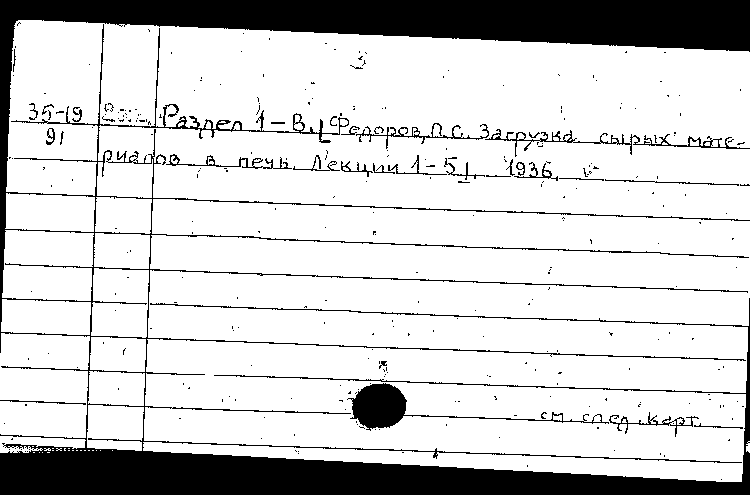 3
35-19 2 экз. Раздел 1-В. [Федоров, П.С. Загрузка сырых мате-
91
риалов в печь. Лекции 1-5]. 1936.
см. след. карт.